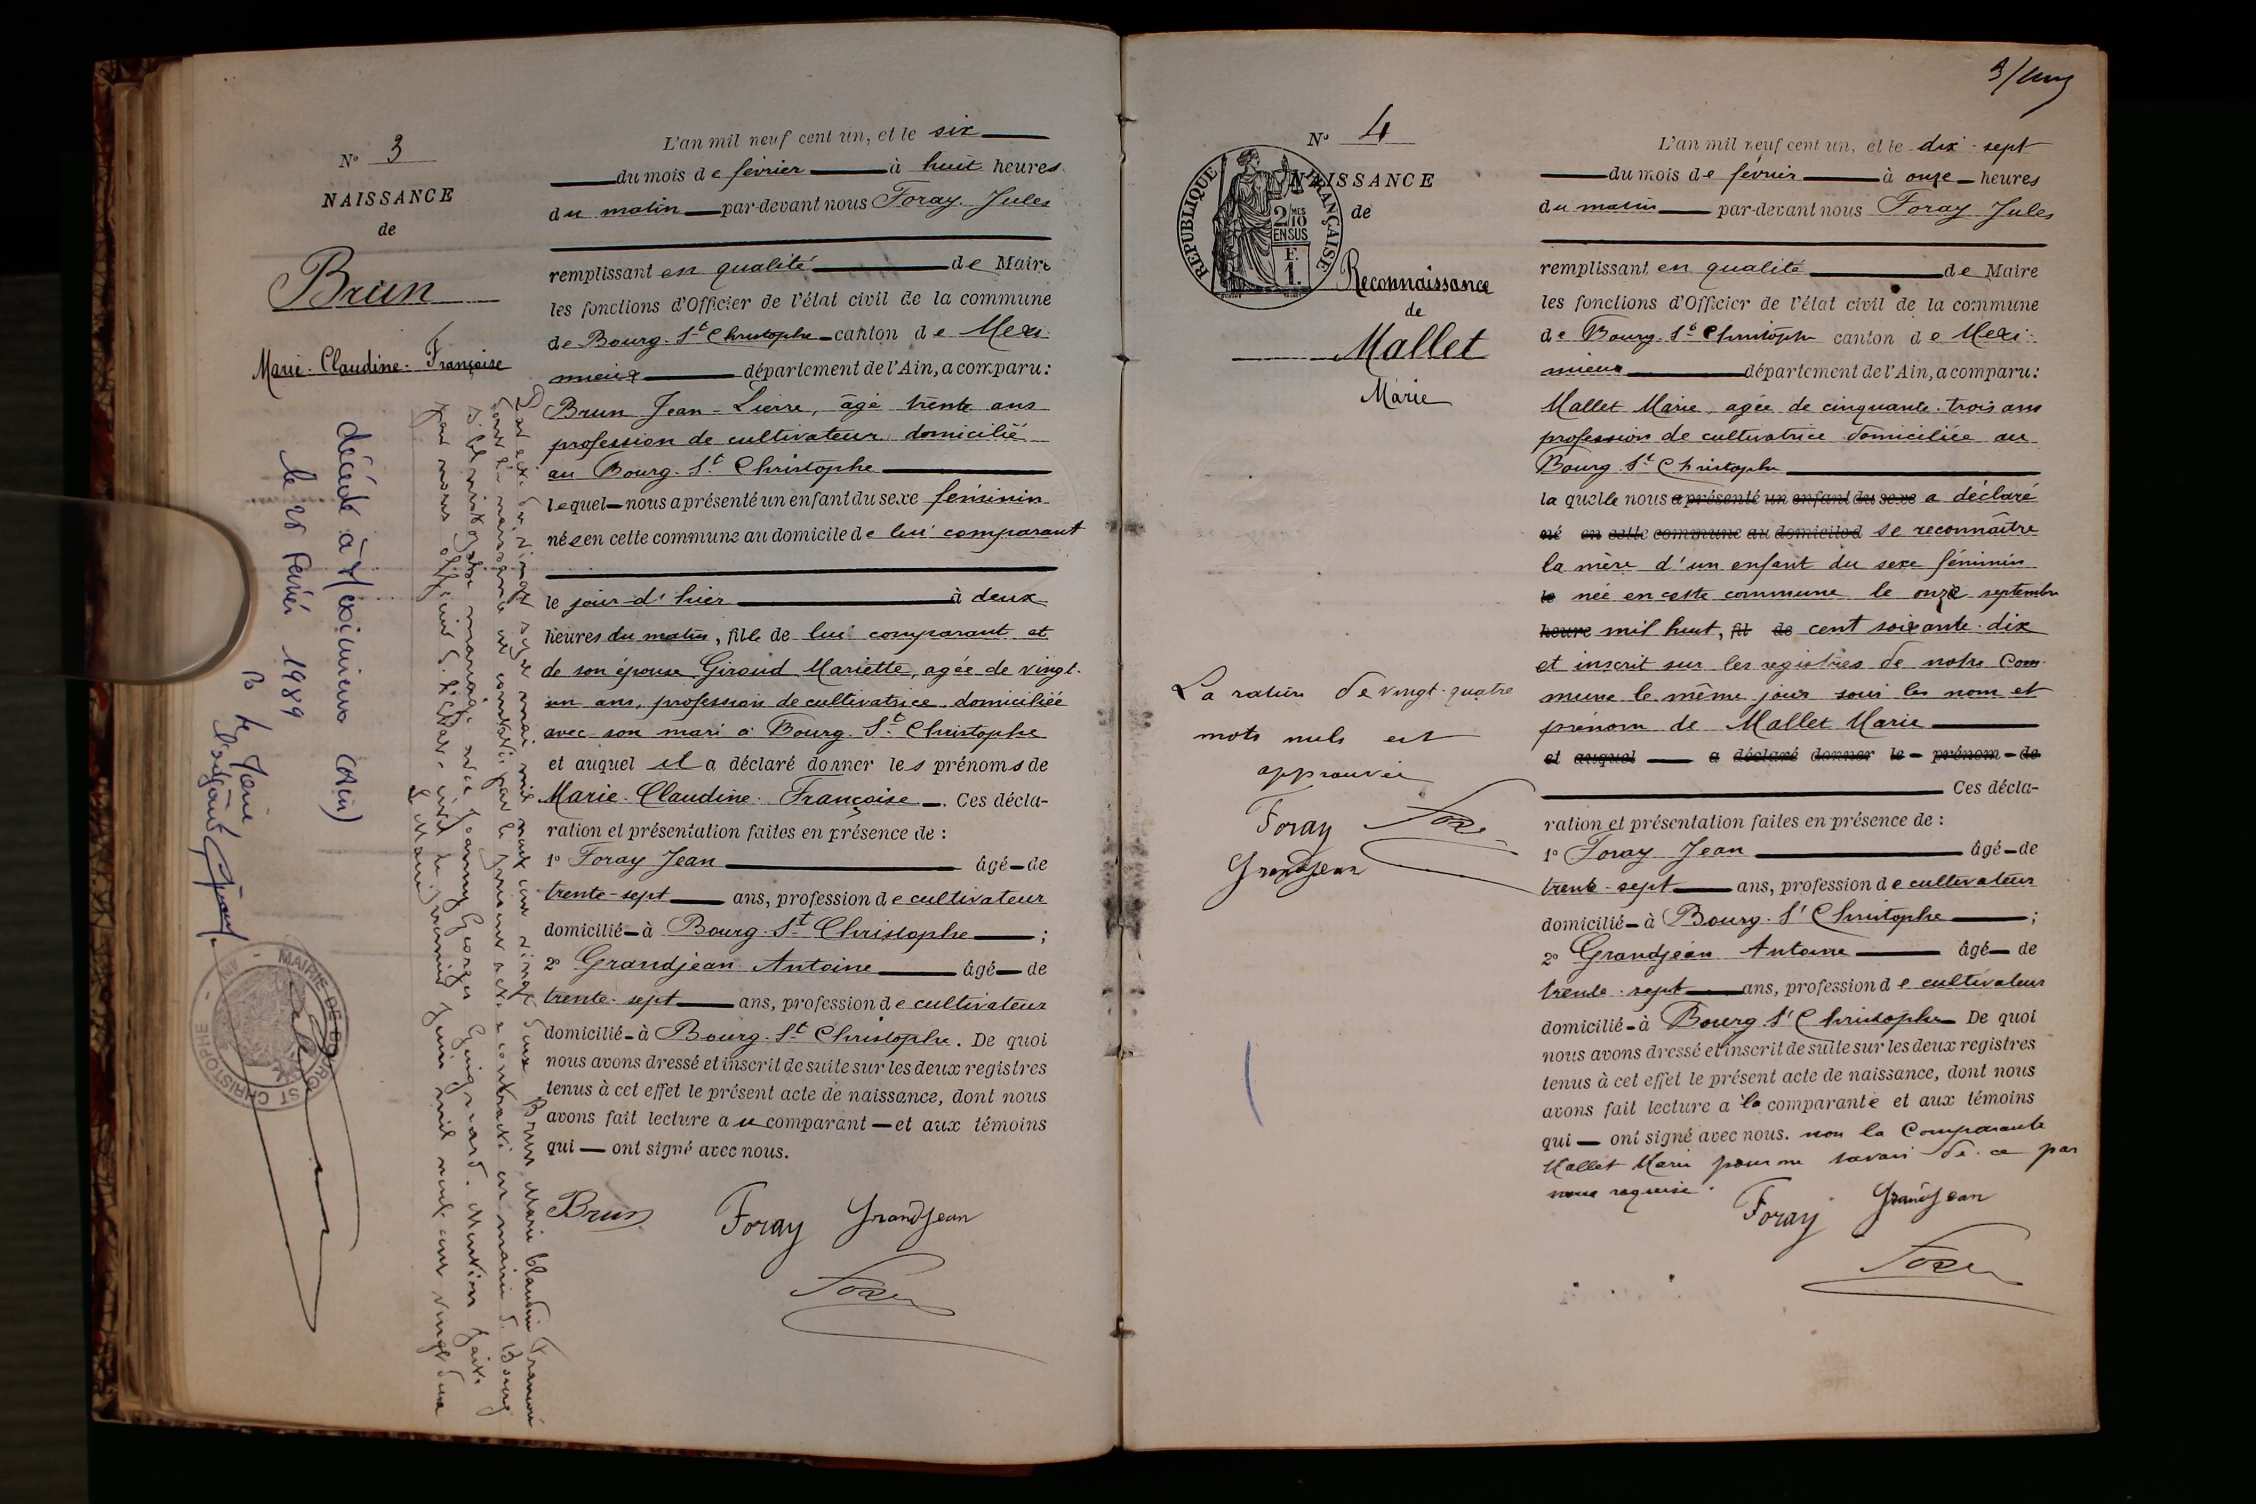 N° 3
NAISSANCE
de
Brun
Marie-Claudine-Françoise
L'an mil neuf cent un, et le six
du mois de février à huit heures
du matin par-devant nous Foray Jules
remplissant en qualité de Maire
les fonctions d'Officier de l'état civil de la commune
de Bourg-St Christophe canton de Mexi-
mieux département de l'Ain, a comparu :
Brun Jean-Pierre, âgé trente ans
profession de cultivateur domicilié
au Bourg-St Christophe
lequel nous a présenté un enfant du sexe féminin
née en cette commune au domicile de lui comparant
le jour d'hier à deux
heures du matin, fille de lui comparant et
de son épouse Giroud Mariette, agée de vingt-
un ans, profession de cultivatrice domiciliée
avec son mari à Bourg-St Christophe
et auquel il a déclaré donner les prénoms de
Marie-Claudine-Françoise. Ces décla-
ration et présentation faites en présence de :
1° Foray Jean âgé de
trente-sept ans, profession de cultivateur
domicilié à Bourg-St Christophe ;
2° Grandjean Antoine âgé de
trente-sept ans, profession de cultivateur
domicilié à Bourg-St Christophe. De quoi
nous avons dressé et inscrit de suite sur les deux registres
tenus à cet effet le présent acte de naissance, dont nous
avons fait lecture au comparant et aux témoins
qui ont signé avec nous.
Brun Foray Grandjean
Foray
vingt six mai mil neuf cent vingt deux Brun Marie Claudine Françoise
dont la naissance est constatée par le présent acte a contracté en mairie de Bourg
St Christophe mariage avec Joanny Georges Guignard. Mention faite
par nous officier de l'état civil le premier juin mil neuf cent vingt deux
Le Maire
décédé à Meximieux (Ain)
le 28 Février 1989
Le Maire
l'adjoint
MAIRIE DE BOURG ST CHRISTOPHE - AIN -
N° 4
NAISSANCE
de
RÉPUBLIQUE FRANÇAISE
2/10 MES
EN SUS
F.
1.
Reconnaissance
de
Mallet
Marie
La rature de vingt-quatre
mots nuls est
approuvée
Foray
Grandjean
L'an mil neuf cent un, et le dix-sept
du mois de février à onze heures
du matin par-devant nous Foray Jules
remplissant en qualité de Maire
les fonctions d'Officier de l'état civil de la commune
de Bourg-St Christophe canton de Mexi-
mieux département de l'Ain, a comparu :
Mallet Marie, agée de cinquante-trois ans
profession de cultivatrice domiciliée au
Bourg St Christophe
laquelle nous a présenté un enfant du sexe a déclaré
né en cette commune au domicile d se reconnaître
la mère d'un enfant du sexe féminin
le née en cette commune le onze septembre
heure mil huit, fil de cent soixante-dix
et inscrit sur les registres de notre Com-
mune le même jour sous les nom et
prénom de Mallet Marie
et auquel a déclaré donner le prénom de
Ces décla-
ration et présentation faites en présence de :
1° Foray Jean âgé de
trente-sept ans, profession de cultivateur
domicilié à Bourg-St Christophe ;
2° Grandjean Antoine âgé de
trente-sept ans, profession de cultivateur
domicilié à Bourg St Christophe De quoi
nous avons dressé et inscrit de suite sur les deux registres
tenus à cet effet le présent acte de naissance, dont nous
avons fait lecture a la comparante et aux témoins
qui ont signé avec nous. non la Comparante
Mallet Marie pour ne savoir de ce par
nous requise.
Foray Grandjean
Foray